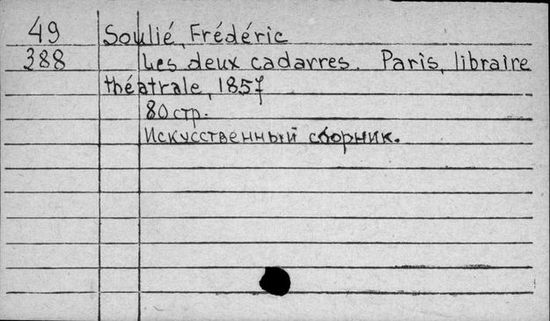 49 Soulié, Frédéric
388 Les deux cadavres. Paris, libraire
théatrale, 1857
80 стр.
Искусственный сборник.